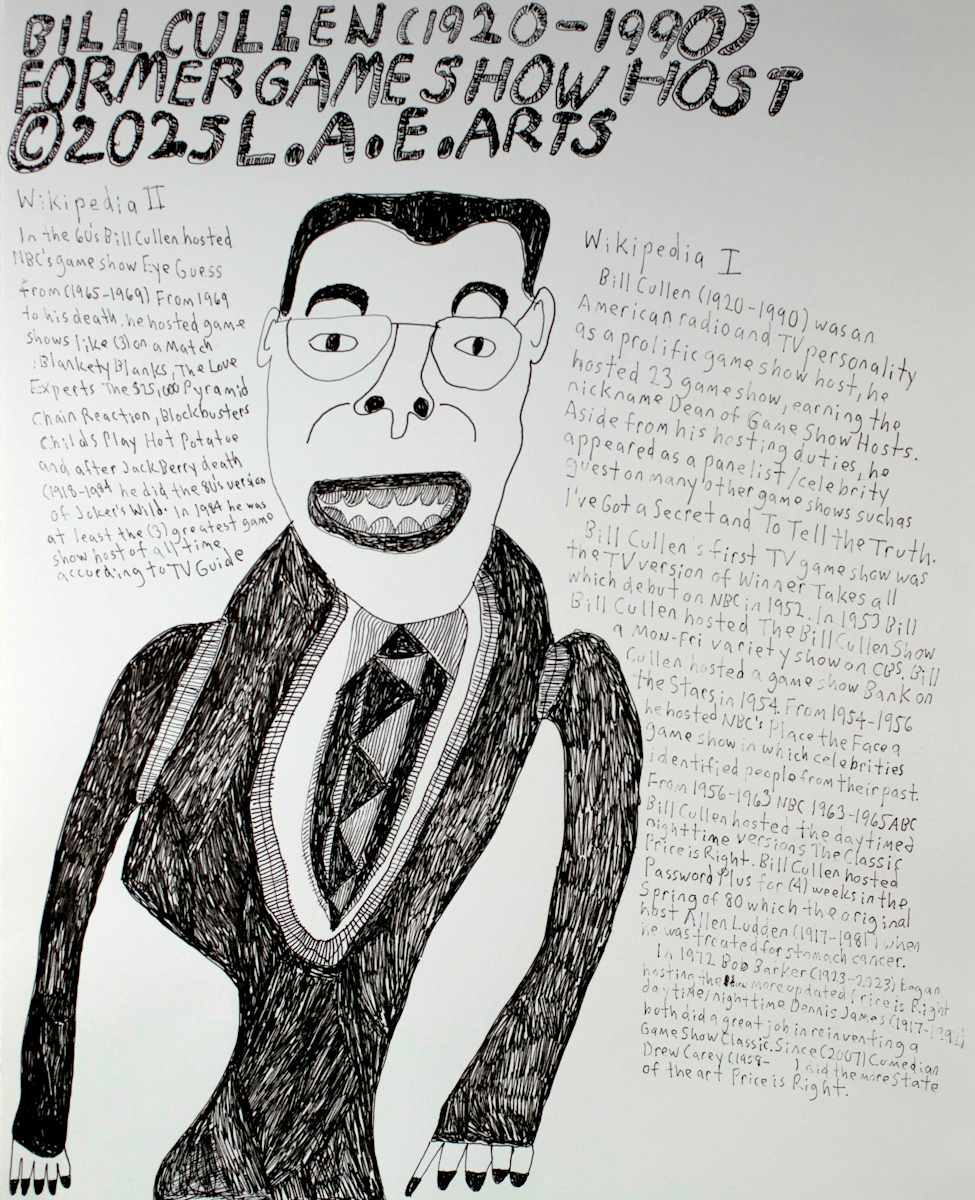 BILL CULLEN (1920-1990)
FORMER GAME SHOW HOST
©2025 L.A.E.ARTS
Wikipedia II
In the 60's Bill Cullen hosted
NBC's game show Eye Guess
from (1965-1969) From 1969
to his death, he hosted game
shows like (3) on a Match
, Blankety Blanks, The Love
Experts The $25,000 Pyramid
Chain Reaction, Blockbusters
Childs Play Hot Potatoe
and after Jack Berry death
(1918-1984 he did the 80's version
of Joker's Wild. In 1984 he was
at least the (3) greatest game
show host of all time
according to TV Guide
Wikipedia I
Bill Cullen (1920-1990) was an
American radio and TV personality
as a prolific game show host, he
hosted 23 game show, earning the
nickname Dean of Game Show Hosts.
Aside from his hosting duties, he
appeared as a panelist/celebrity
guest on many other game shows such as
I've Got a Secret and To Tell the Truth.
Bill Cullen's first TV game show was
the TV version of Winner Takes all
which debut on NBC in 1952. In 1953 Bill
Bill Cullen hosted The Bill Cullen Show
a Mon-Fri variety show on CBS. Bill
Cullen hosted a game show Bank on
the Stars, in 1954. From 1954-1956
he hosted NBC's Place the Face a
game show in which celebrities
identified people from their past.
From 1956-1963 NBC 1963-1965 ABC
Bill Cullen hosted the daytimed
nighttime versions The Classic
Price is Right. Bill Cullen hosted
Password Plus for (4) weeks in the
Spring of 80 which the original
host Allen Ludden (1917-1981) when
he was treated for stomach cancer.
In 1972 Bob Barker (1923-2023) began
hosting the more updated Price is Right
daytime/nighttime Dennis James (1917-1997)
both did a great job in reinventing a
Game Show Classic. Since (2007) Comedian
Drew Carey (1958- ) did the more State
of the art Price is Right.